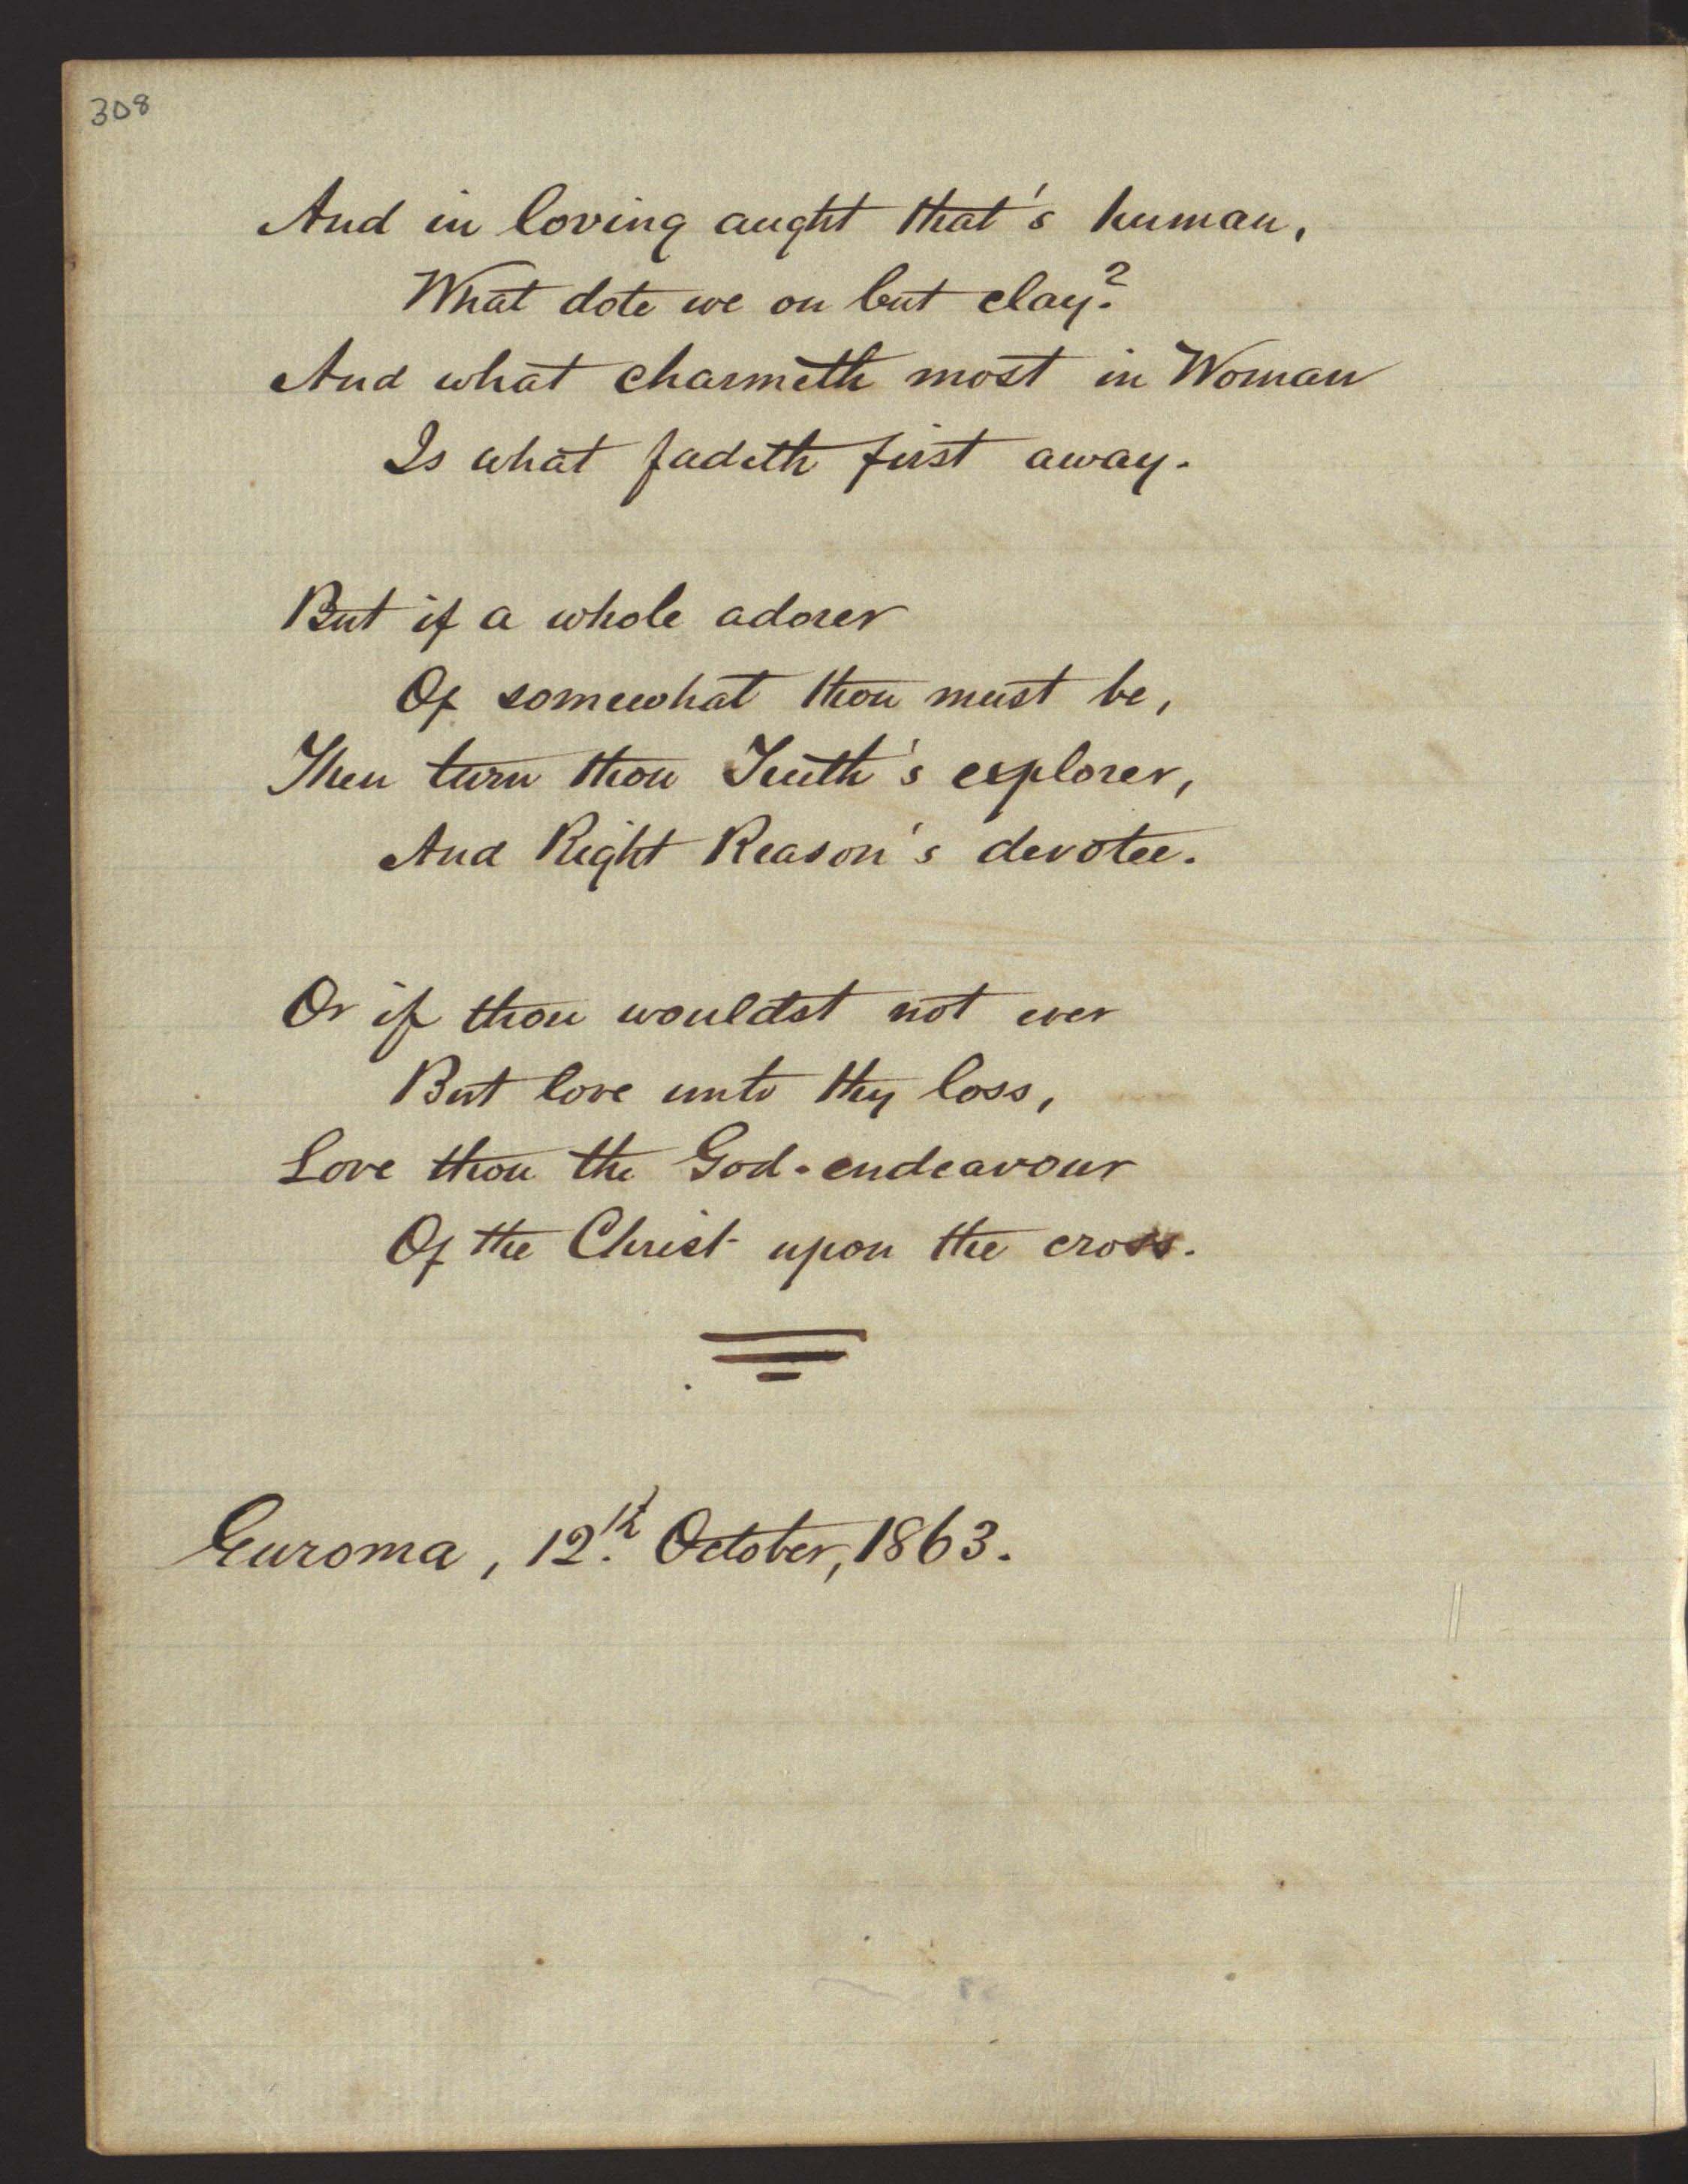 308
And in loving aught that's human,
What dote we on but clay?
And what charmeth most in Woman
Is what fadeth first away.
But if a whole adorer
Of somewhat thou must be,
Then turn thou Truth's explorer,
And Right Reason's devotee.
Or if thou wouldst not ever
But love unto thy loss,
Love thou the God-endeavour
Of the Christ upon the cross.
Euroma, 12th October, 1863.